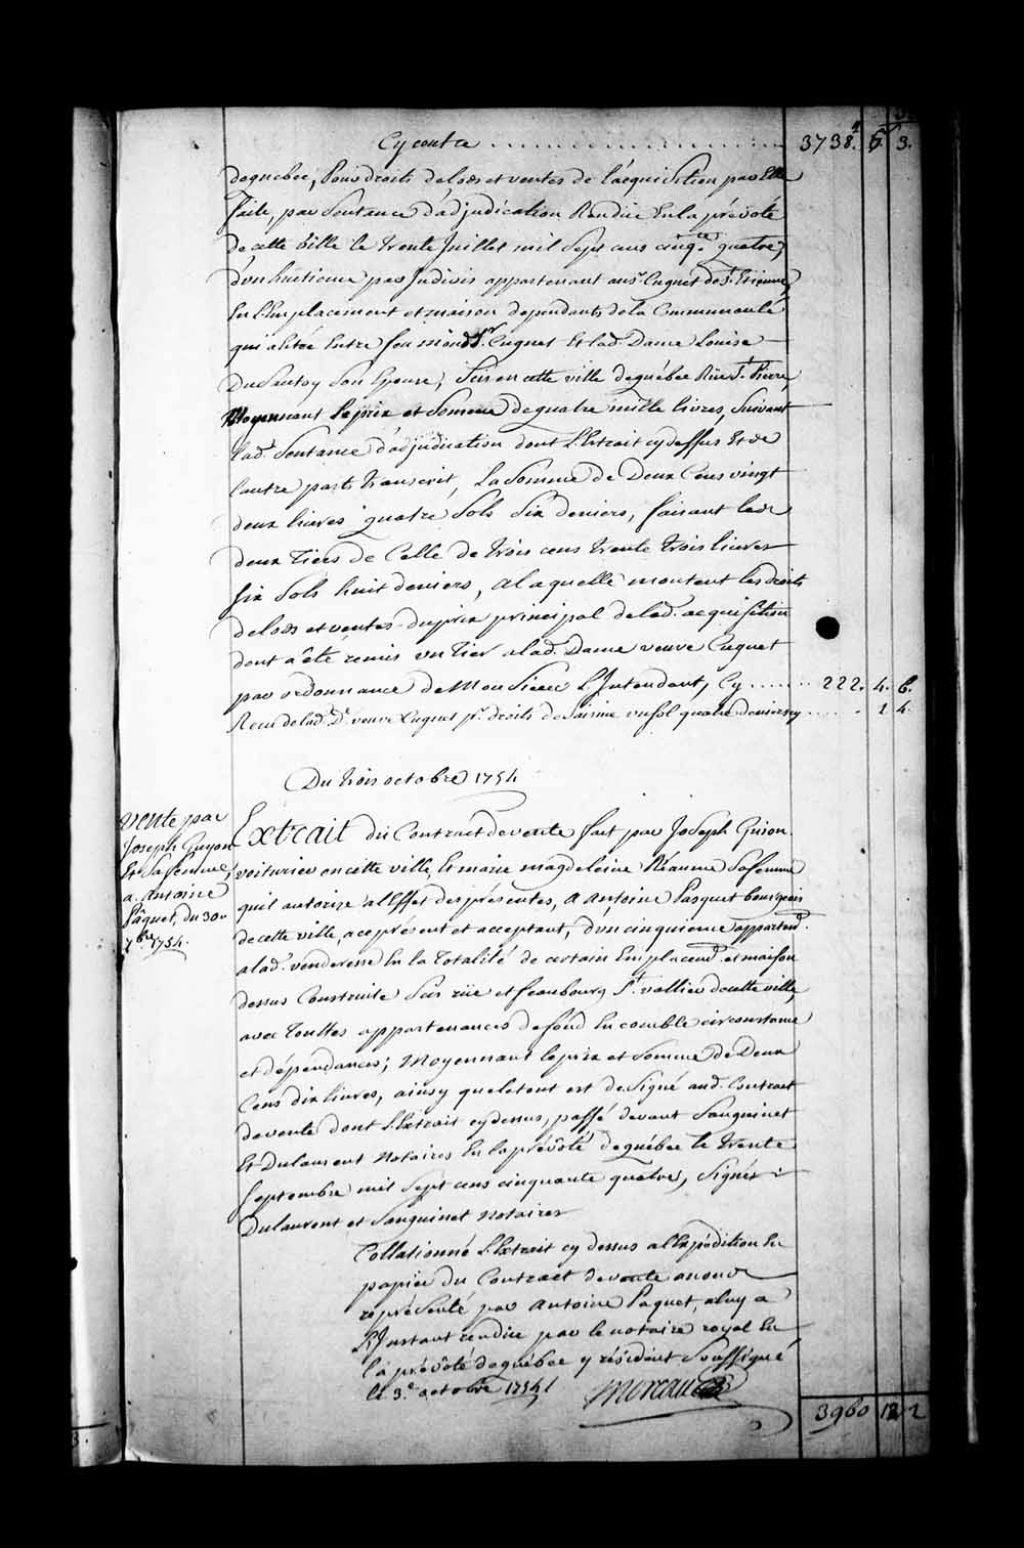 Cy contre . . . . . . . . . . . . . . . . . . 3738.# 6.s 3.
de quebec, Pour droits de lods et ventes de l'acquisition par Elle
faite, par Sentance d'adjudication Rendüe En la prévoté
de cette Ville le trente Juillet mil Sept cens cinq.te quatre,
d'un huitieme par Indivis appartenant au s.r Cuguet de S.t Etienne,
En L'Emplacement et maison dependants de la Communauté
qui a été Entre feu mond. S.r Cuguet Et lad. Dame Louise
Dusautoy Son Epouse, Sis en cette ville de québec Rüe S.t Pierre,
Moyennant le prix et Somme de quatre mille livres, Suivant
lad. Sentance d'adjudication dont L'Extrait cy dessus Et de
l'autre parts transcrit, La Somme de Deux Cens vingt
deux livres quatre Sols Six deniers, faisant les
deux Tiers de Celle de trois cens trente trois livres
Six Sols huit deniers, a laquelle montent les droits
de lods et ventes du prix principal de lad. acquisition
dont a été remis un Tier a lad. Dame veuve Cuguet
par ordonnance de Monsieur L'Intendant, Cy . . . . . . 222. 4. 6.
Recu de lad. D.e veuve Cuguet p.r droits de Saisine un sol quatre deniers cy . . . . . 1 4.
Du trois octobre 1754
Vente par
Joseph Guyon
Et Sa femme,
a Antoine
Pâquet, du 30.
7.bre 1754.
Extrait du Contract de vente fait par Joseph Guion
voiturier en cette ville, Et marie magdeleine Réaume Sa femme
quil autorize a l'Effet des présentes, a Antoine Pasquet bourgeois
de cette ville, a ce présent et acceptant, d'un cinquieme appartend.
a lad. venderesse En la Totalité de certain Emplacem.t et maison
dessus Construite Sis rüe et feaubourg S.t vallier de cette ville,
avec Touttes appartenances de fond En comble circonstance
et dépendances; Moyennant le prix et Somme de Deux
Cens dix livres, ainsy que le tout est designé aud. Contract
de vente dont L'Extrait cy dessus, passé devant Sanguinet
Et Dulaurent Notaires En la prévôté de québec le trente
Septembre mil Sept cens cinquante quatre, Signés :
Dulaurent et Sanguinet notaires
Collationné L'Extrait cy dessus a l'Expédition En
papier du Contract de vente a nous
représenté par Antoine Paquet, a luy a
L'Instant rendüe par le notaire royal En
la prévôté de quebec y résident Soussigné
le 3.e octobre 1754 /. Moreau
3960 12 2